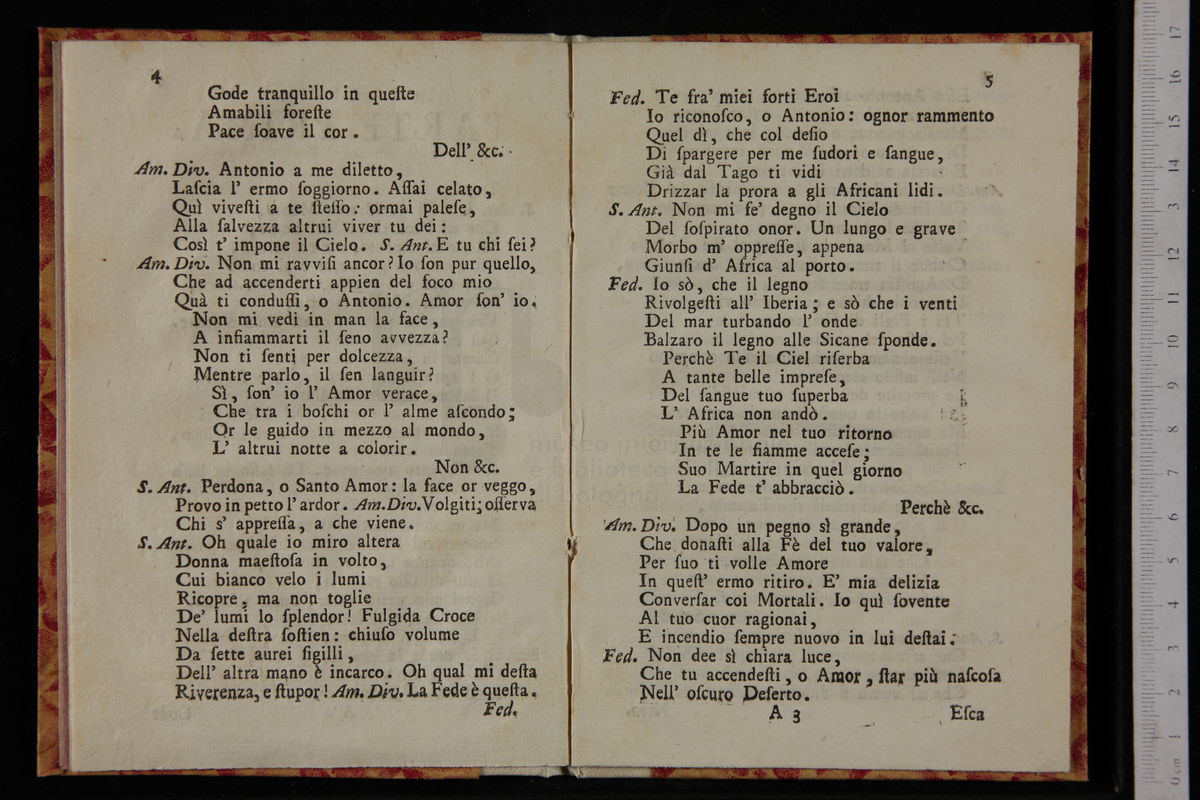 4
Gode tranquillo in queſte
Amabili foreſte
Pace ſoave il cor.
Dell' &c.
Am. Div. Antonio a me diletto,
Laſcia l' ermo ſoggiorno. Aſſai celato,
Quì viveſti a te ſteſſo: ormai paleſe,
Alla ſalvezza altrui viver tu dei:
Così t' impone il Cielo. S. Ant. E tu chi ſei?
Am. Div. Non mi ravviſi ancor? Io ſon pur quello,
Che ad accenderti appien del foco mio
Quà ti conduſſi, o Antonio. Amor ſon' io.
Non mi vedi in man la face,
A infiammarti il ſeno avvezza?
Non ti ſenti per dolcezza,
Mentre parlo, il ſen languir?
Sì, ſon' io l' Amor verace,
Che tra i boſchi or l' alme aſcondo;
Or le guido in mezzo al mondo,
L' altrui notte a colorir.
Non &c.
S. Ant. Perdona, o Santo Amor: la face or veggo,
Provo in petto l' ardor. Am. Div. Volgiti; oſſerva
Chi s' appreſſa, a che viene.
S. Ant. Oh quale io miro altera
Donna maeſtoſa in volto,
Cui bianco velo i lumi
Ricopre, ma non toglie
De' lumi lo ſplendor! Fulgida Croce
Nella deſtra ſoſtien: chiuſo volume
Da ſette aurei ſigilli,
Dell' altra mano è incarco. Oh qual mi deſta
Riverenza, e ſtupor! Am. Div. La Fede è queſta.
Fed.
5
Fed. Te fra' miei forti Eroi
Io riconoſco, o Antonio: ognor rammento
Quel dì, che col deſio
Di ſpargere per me ſudori e ſangue,
Già dal Tago ti vidi
Drizzar la prora a gli Africani lidi.
S. Ant. Non mi fe' degno il Cielo
Del ſoſpirato onor. Un lungo e grave
Morbo m' oppreſſe, appena
Giunſi d' Africa al porto.
Fed. Io sò, che il legno
Rivolgeſti all' Iberia; e sò che i venti
Del mar turbando l' onde
Balzaro il legno alle Sicane ſponde.
Perchè Te il Ciel riſerba
A tante belle impreſe,
Del ſangue tuo ſuperba
L' Africa non andò.
Più Amor nel tuo ritorno
In te le fiamme acceſe;
Suo Martire in quel giorno
La Fede t' abbracciò.
Perchè &c.
Am. Div. Dopo un pegno sì grande,
Che donaſti alla Fè del tuo valore,
Per ſuo ti volle Amore
In queſt' ermo ritiro. E' mia delizia
Converſar coi Mortali. Io quì ſovente
Al tuo cuor ragionai,
E incendio ſempre nuovo in lui deſtai.
Fed. Non dee sì chiara luce,
Che tu accendeſti, o Amor, ſtar più naſcoſa
Nell' oſcuro Deſerto.
A 3
Eſca
museo
e biblioteca
di bologna
0 cm 1 2 3 4 5 6 7 8 9 10 11 12 13 14 15 16 17